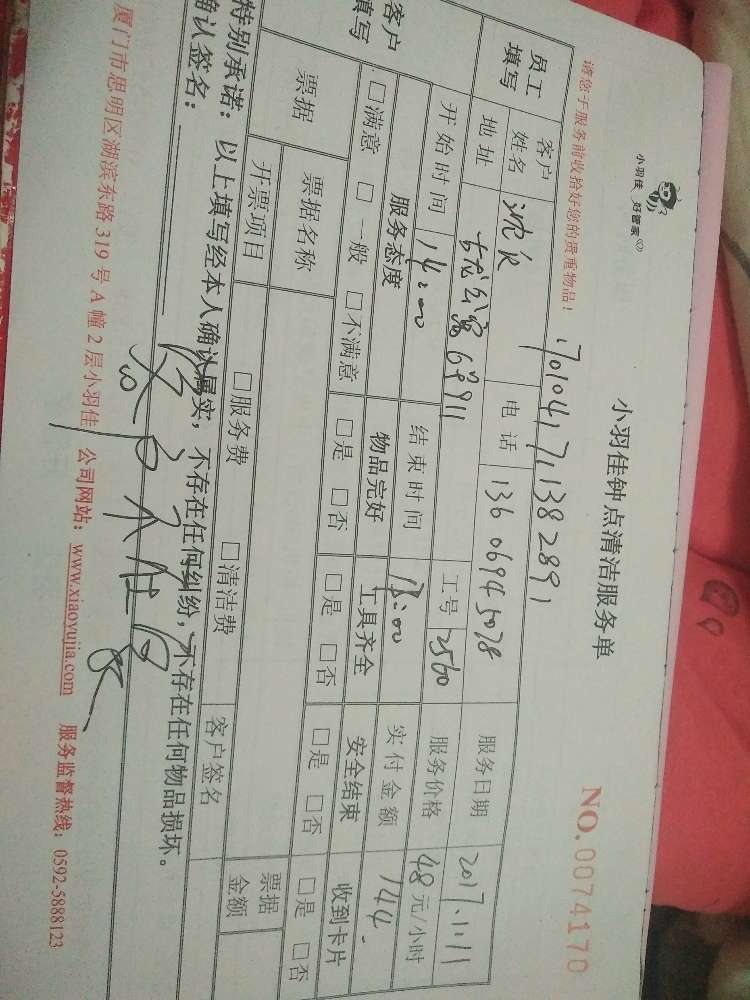 小羽佳 好管家
小羽佳钟点清洁服务单
NO.0074170
请您于服务前收拾好您的贵重物品！
70104171382891
员工填写
客户姓名 沈 电话 13606945078 服务日期 2017.1.11
地址 公寓6#911 工号 2560 服务价格 48元/小时
开始时间 14:00 结束时间 :00 实付金额 144.
客户填写
服务态度 物品完好 工具齐全 安全结束 收到卡片
□满意 □一般 □不满意 □是 □否 □是 □否 □是 □否 □是 □否
票据 票据名称 票据金额
开票项目 □服务费 □清洁费 客户签名
特别承诺：以上填写经本人确认属实，不存在任何纠纷，不存在任何物品损坏。
确认签名：
厦门市思明区湖滨东路319号A幢2层小羽佳 公司网站：www.xiaoyujia.com 服务监督热线：0592-5888123